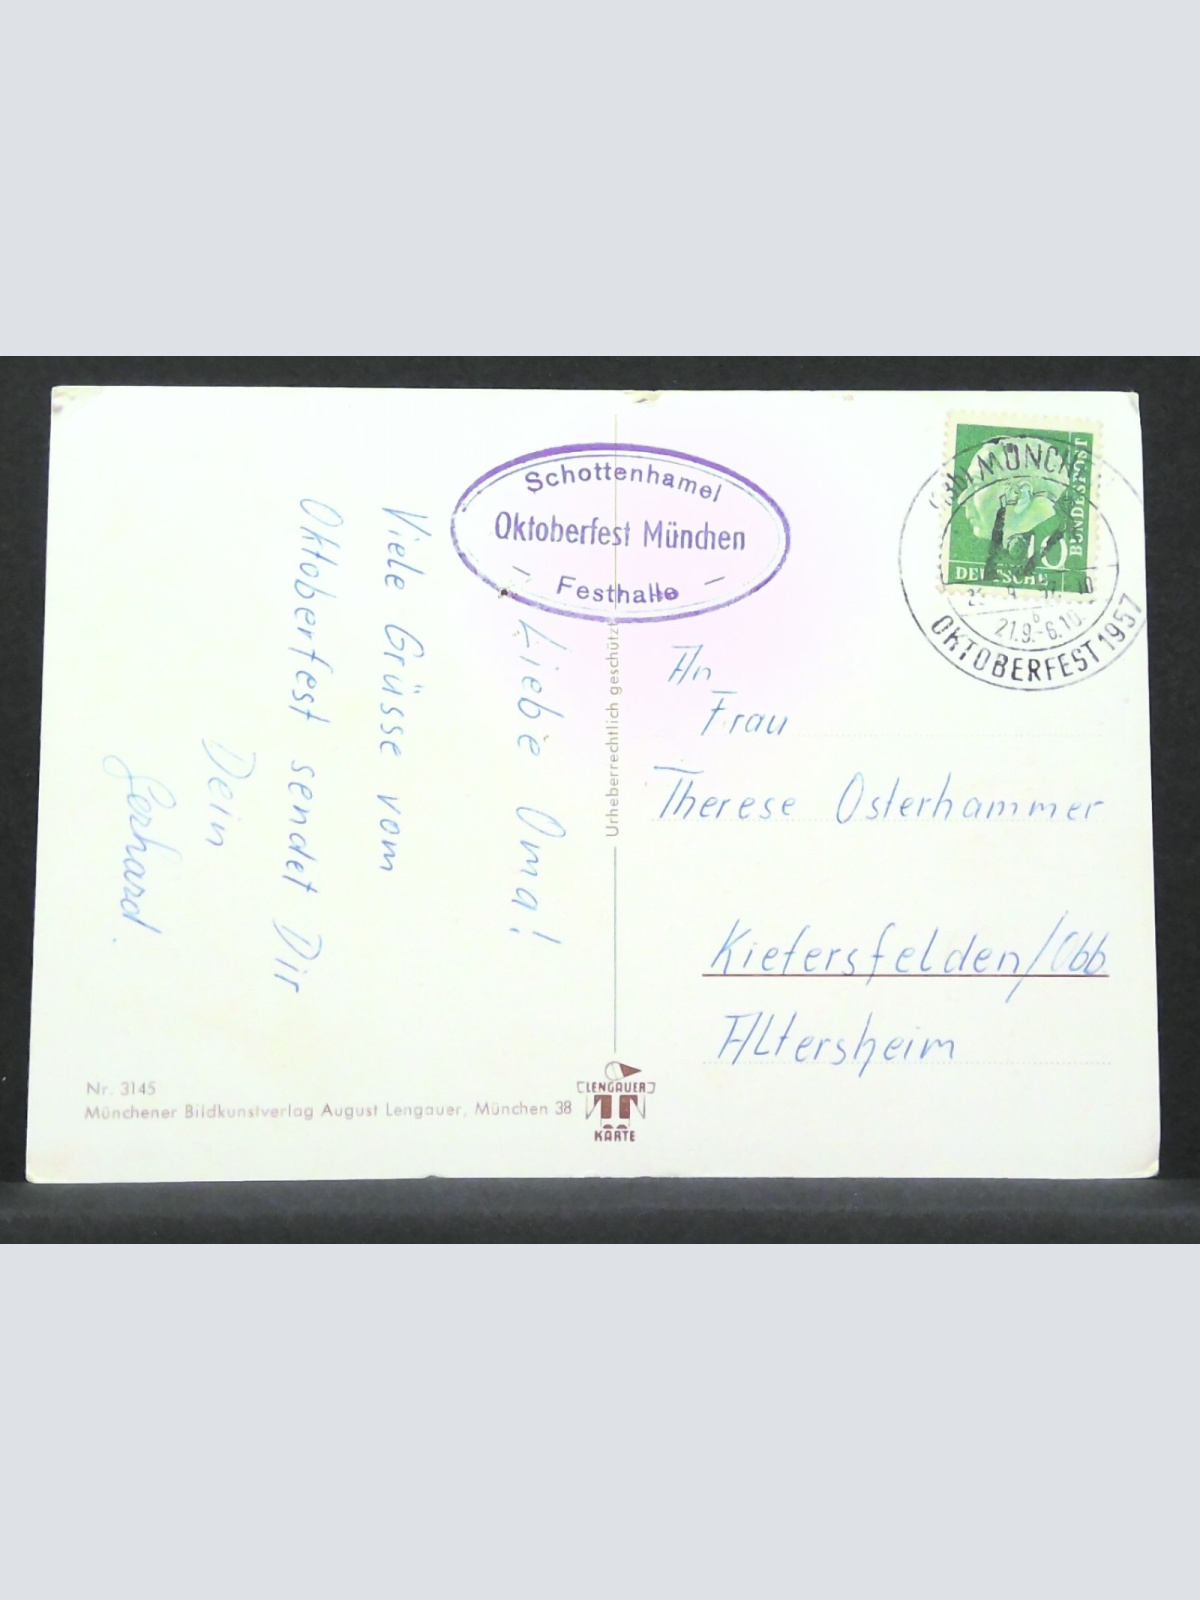 Schottenhamel
Oktoberfest München
- Festhalle -
Liebe Oma!
Viele Grüsse vom
Oktoberfest sendet Dir
Dein
Gerhard.
Nr. 3145
Münchener Bildkunstverlag August Lengauer, München 38
Urheberrechtlich geschützt
LENGAUER
KARTE
DEUTSCHE
BUNDESPOST
10
MÜNCHEN
21.9.-6.10.
OKTOBERFEST 1957
An
Frau
Therese Osterhammer
Kiefersfelden/Obb
Altersheim